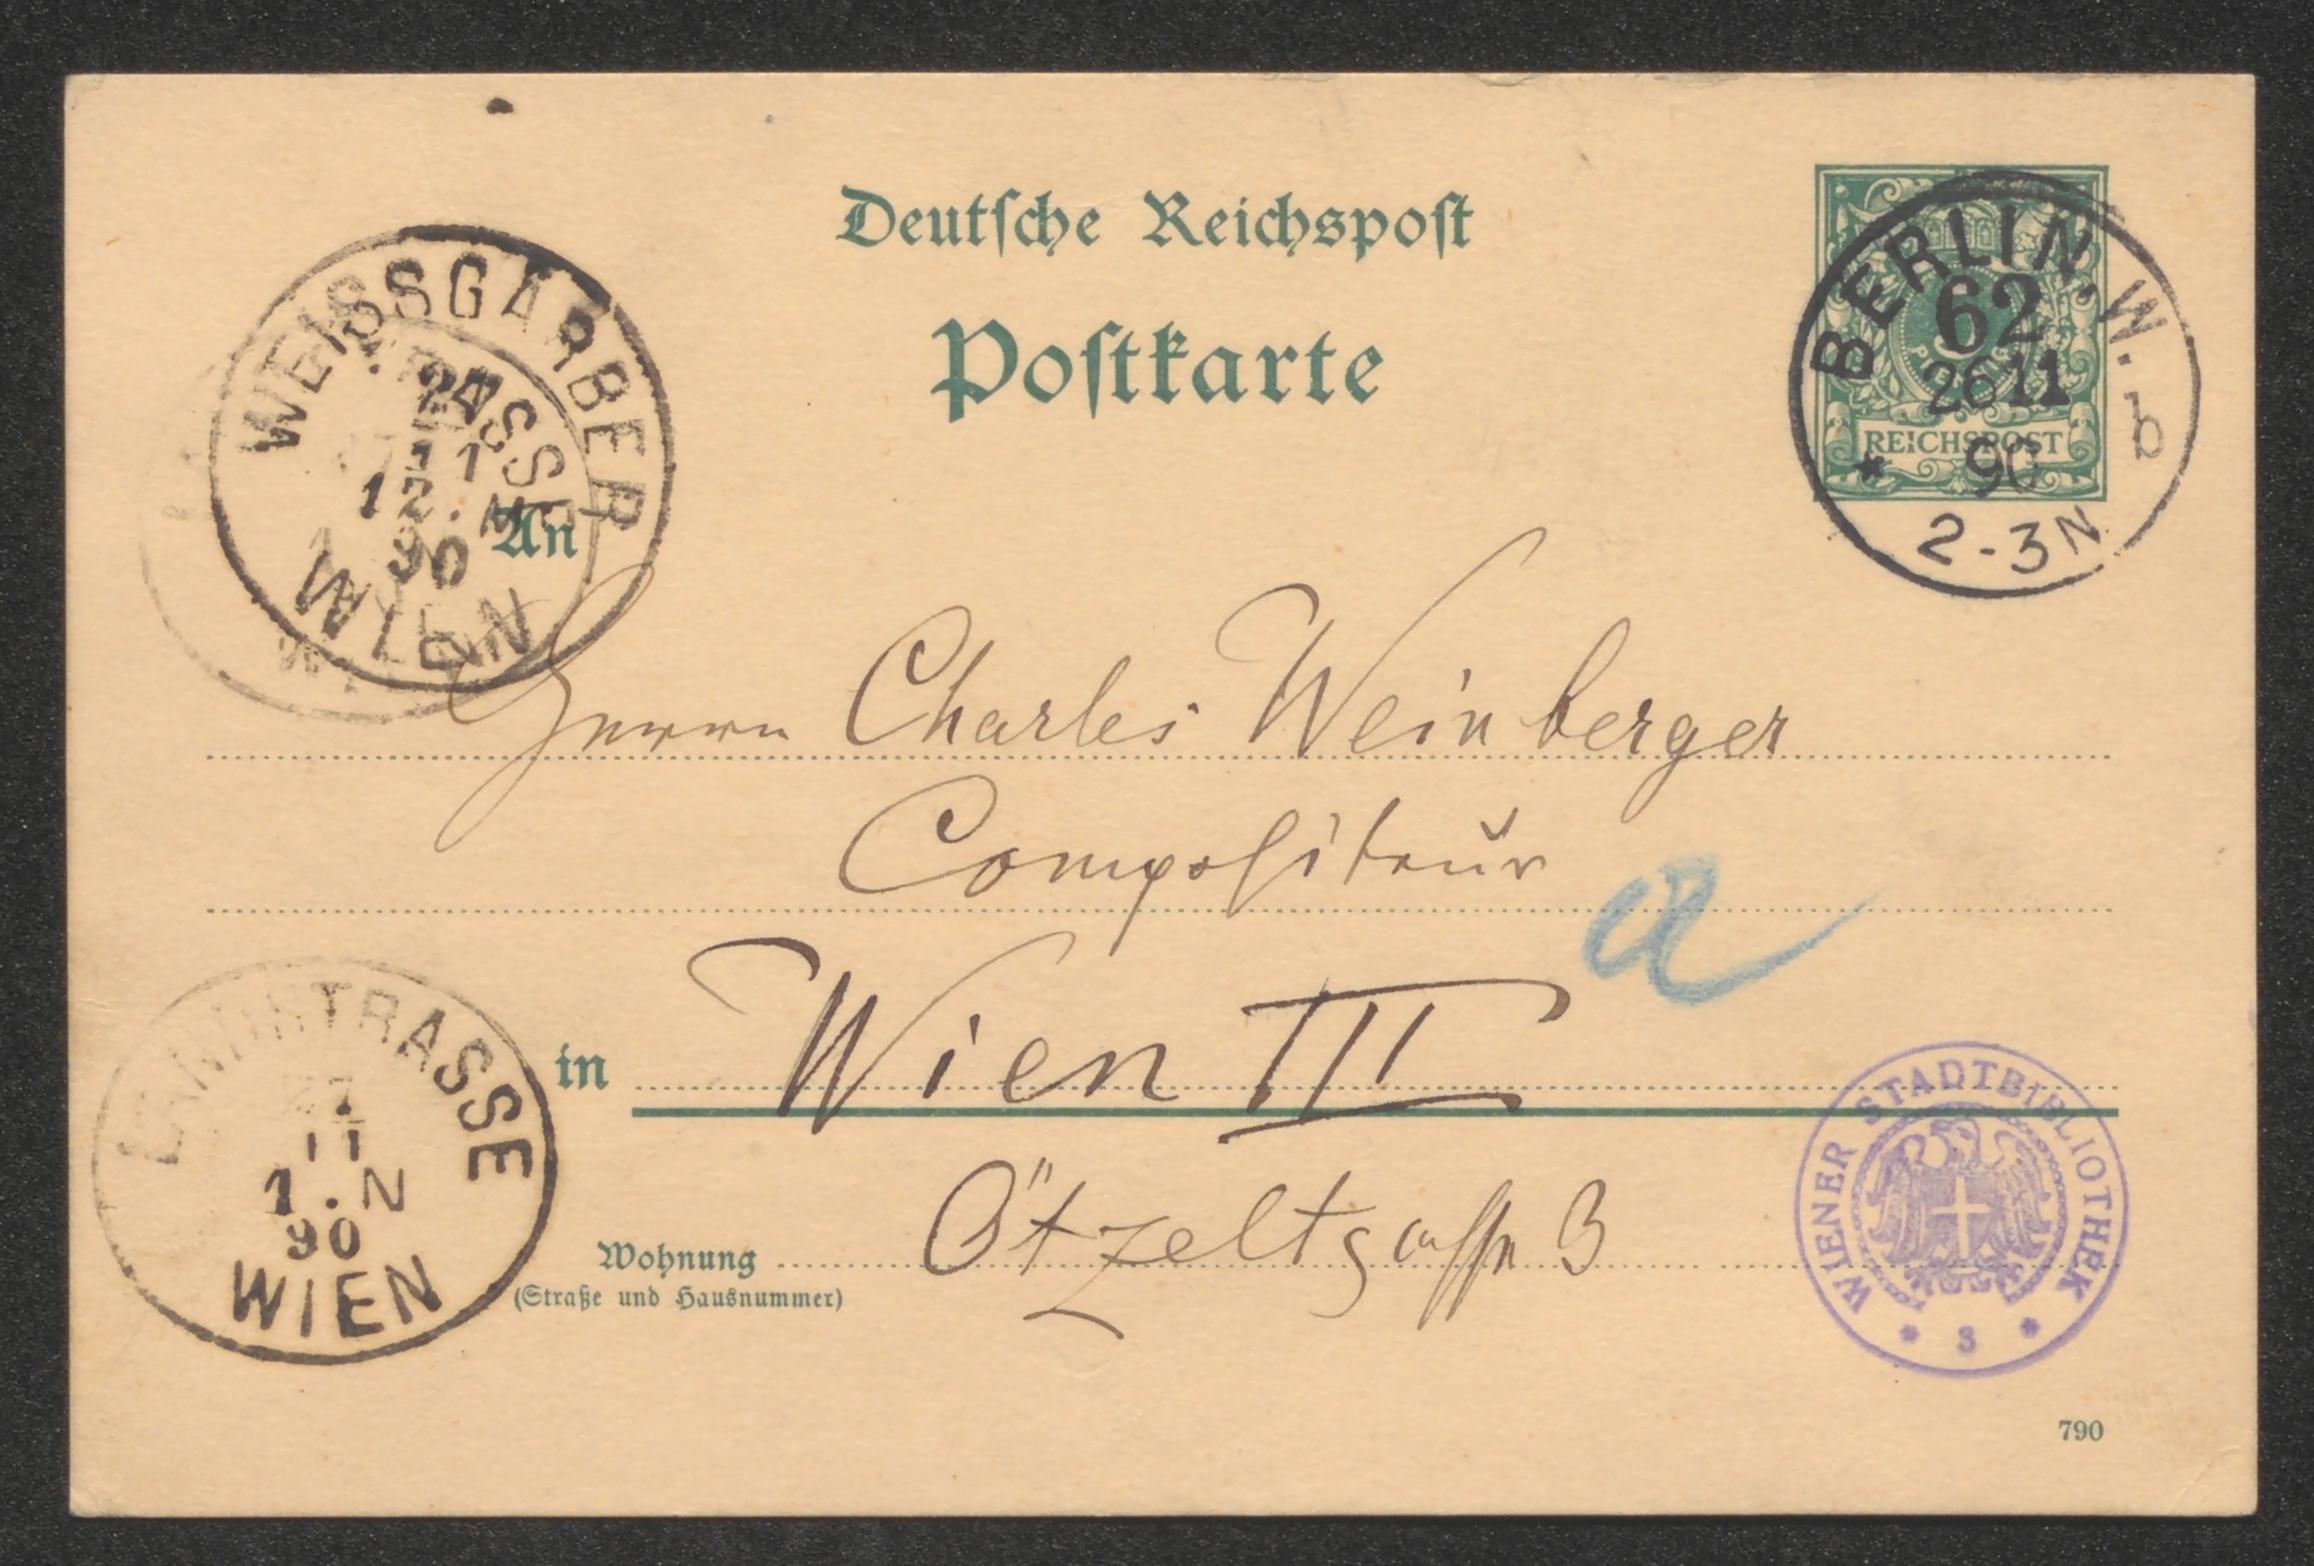 Deutsche Reichspost
Postkarte
BERLIN. W.
62
26 11
90
2-3N
b
REICHSPOST
WEISSGÄRBER
12. M
90
WIEN
An
Herrn Charles Weinberger
Compositeur
a
in Wien III
LANDSTRASSE
27
11
1.N
90
WIEN
Wohnung Ötzeltgasse 3
(Straße und Hausnummer)
WIENER STADTBIBLIOTHEK
* 3 *
790